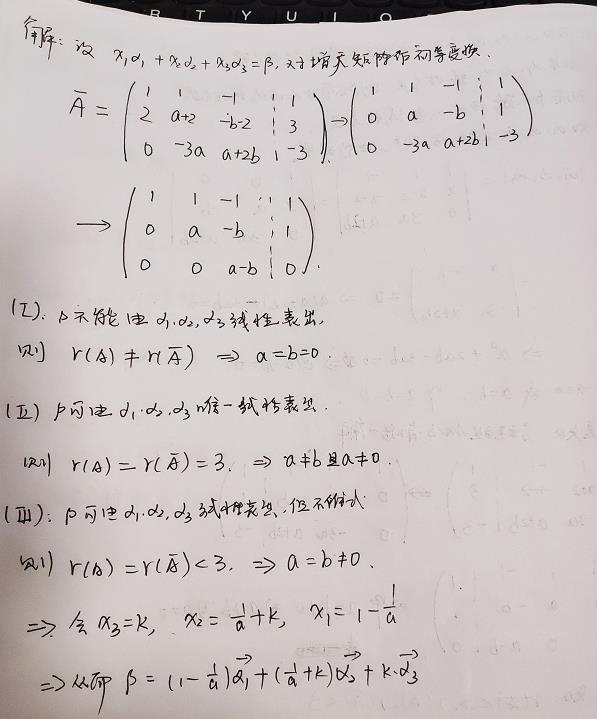 R T Y U I O
解: 设 x₁α₁ + x₂α₂ + x₃α₃ = β, 对增广矩阵作初等变换.
Ā = ( 1 1 -1 ┆ 1
2 a+2 -b-2 ┆ 3
0 -3a a+2b ┆ -3 ) → ( 1 1 -1 ┆ 1
0 a -b ┆ 1
0 -3a a+2b ┆ -3 )
→ ( 1 1 -1 ┆ 1
0 a -b ┆ 1
0 0 a-b ┆ 0 ).
(I): β不能由 α₁.α₂,α₃线性表出,
则 r(A) ≠ r(Ā) ⇒ a=b=0.
(II) β可由 α₁.α₂.α₃唯一线性表出.
则 r(A) = r(Ā) = 3. ⇒ a≠b且a≠0.
(III): β可由 α₁.α₂.α₃线性表出,但不唯一
则 r(A) = r(Ā) < 3. ⇒ a=b≠0.
⇒ 令 x₃=k, x₂= 1/a +k, x₁= 1- 1/a
⇒ 从而 β = (1- 1/a)α₁→ + (1/a +k)α₂→ + k·α₃→